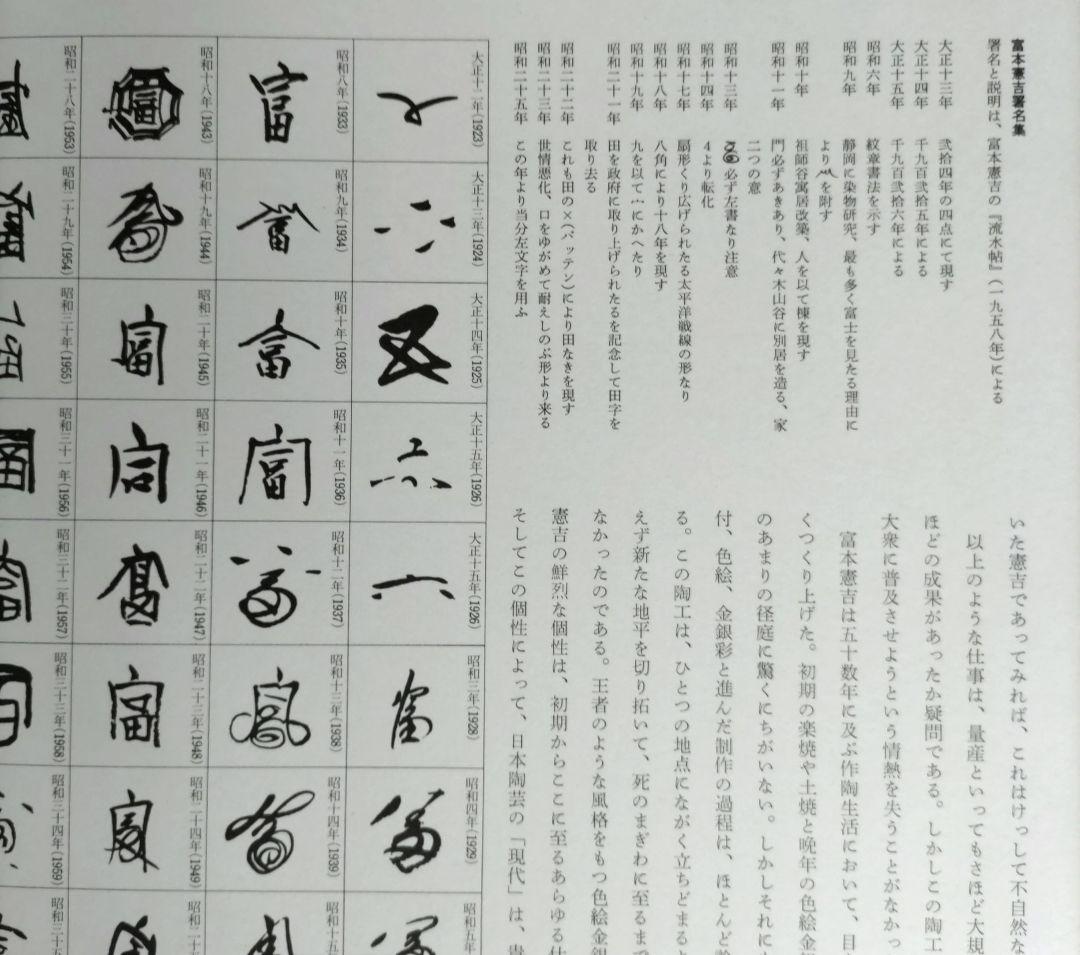 富本憲吉署名集
署名と説明は、富本憲吉の『流水帖』(一九五八年)による
大正十三年 弐拾四年の四点にて現す
大正十四年 千九百弐拾五年による
大正十五年 千九百弐拾六年による
昭和六年 紋章書法を示す
昭和九年 静岡に染物研究、最も多く富士を見たる理由に
よりへを附す
昭和十年 祖師谷寓居改築、人を以て棟を現す
昭和十一年 門必ずあきあり、代々木山谷に別居を造る、家
二つの意
昭和十三年 必ず左書なり注意
昭和十四年 4より転化
昭和十七年 扇形くり広げられたる太平洋戦線の形なり
昭和十八年 八角により十八年を現す
昭和十九年 九を以て宀にかへたり
昭和二十一年 田を政府に取り上げられたるを記念して田字を
取り去る
昭和二十二年 これも田の×(バッテン)により田なきを現す
昭和二十三年 世情悪化、口をゆがめて耐えしのぶ形より来る
昭和二十五年 この年より当分左文字を用ふ
いた憲吉であってみれば、これはけっして不自然な
以上のような仕事は、量産といってもさほど大規
ほどの成果があったか疑問である。しかしこの陶工
大衆に普及させようという情熱を失うことがなかっ
富本憲吉は五十数年に及ぶ作陶生活において、目
くつくり上げた。初期の楽焼や土焼と晩年の色絵金
のあまりの径庭に驚くにちがいない。しかしそれに
付、色絵、金銀彩と進んだ制作の過程は、ほとんど
る。この陶工は、ひとつの地点にながく立ちどまる
えず新たな地平を切り拓いて、死のまぎわに至るまで
なかったのである。王者のような風格をもつ色絵金銀
憲吉の鮮烈な個性は、初期からここに至るあらゆる仕
そしてこの個性によって、日本陶芸の「現代」は、
大正十二年(1923)
大正十三年(1924)
大正十四年(1925)
大正十五年(1926)
大正十五年(1926)
昭和三年(1928)
昭和四年(1929)
昭和五年
昭和八年(1933)
富
昭和九年(1934)
昭和十年(1935)
富
昭和十一年(1936)
富
昭和十二年(1937)
昭和十三年(1938)
昭和十四年(1939)
昭和十五
昭和十八年(1943)
昭和十九年(1944)
昭和二十年(1945)
富
昭和二十一年(1946)
昭和二十二年(1947)
昭和二十三年(1948)
富
昭和二十四年(1949)
昭和二十
昭和二十八年(1953)
昭和二十九年(1954)
昭和三十年(1955)
昭和三十一年(1956)
昭和三十二年(1957)
昭和三十三年(1958)
昭和三十四年(1959)
昭和三十五